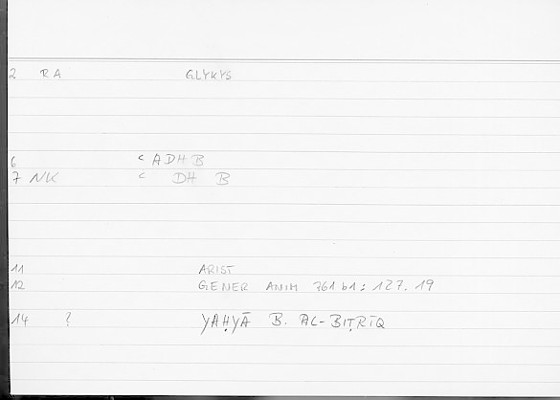 2 RA GLYKYS
6 ʿADHB
7 NK ʿ DH B
11 ARIST
12 GENER ANIM 761 b1: 127.19
14 ? YAḤYĀ B. AL-BIṬRĪQ